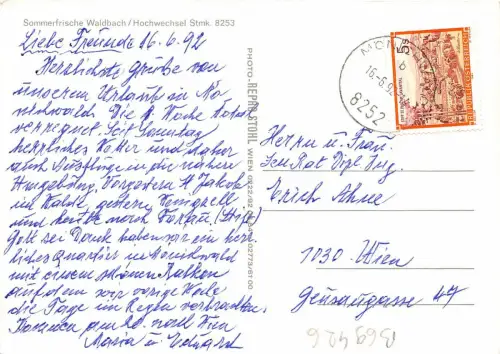 Sommerfrische Waldbach / Hochwechsel Stmk. 8253
Liebe Freunde 16.6.92
Herzlichste Grüße von
unserem Urlaub in Mö
nichwald. Die 1. Woche total
verregnet. Seit Sonntag
herrliches Wetter und
auch Ausflüge in die nähere
Umgebung. Vorgestern St. Jakob
im Walde, gestern
und heute nach Vorau (Stift)
Gott sei Dank haben wir ein herr
liches Quartier in Mönichwald
mit einem schönen Balkon
auf dem wir vorige Woche
die Tage im Regen verbrachten.
am 20. nach Wien
Maria u. Eduard
PHOTO-REPRO STOHL WIEN
MÖNI
16.-6.92
8252
5S
REPUBLIK ÖSTERREICH
Herrn u. Frau
Sen Rat Dipl Ing.
Erich Ahne
1030 Wien
Geusaugasse 47
B69426